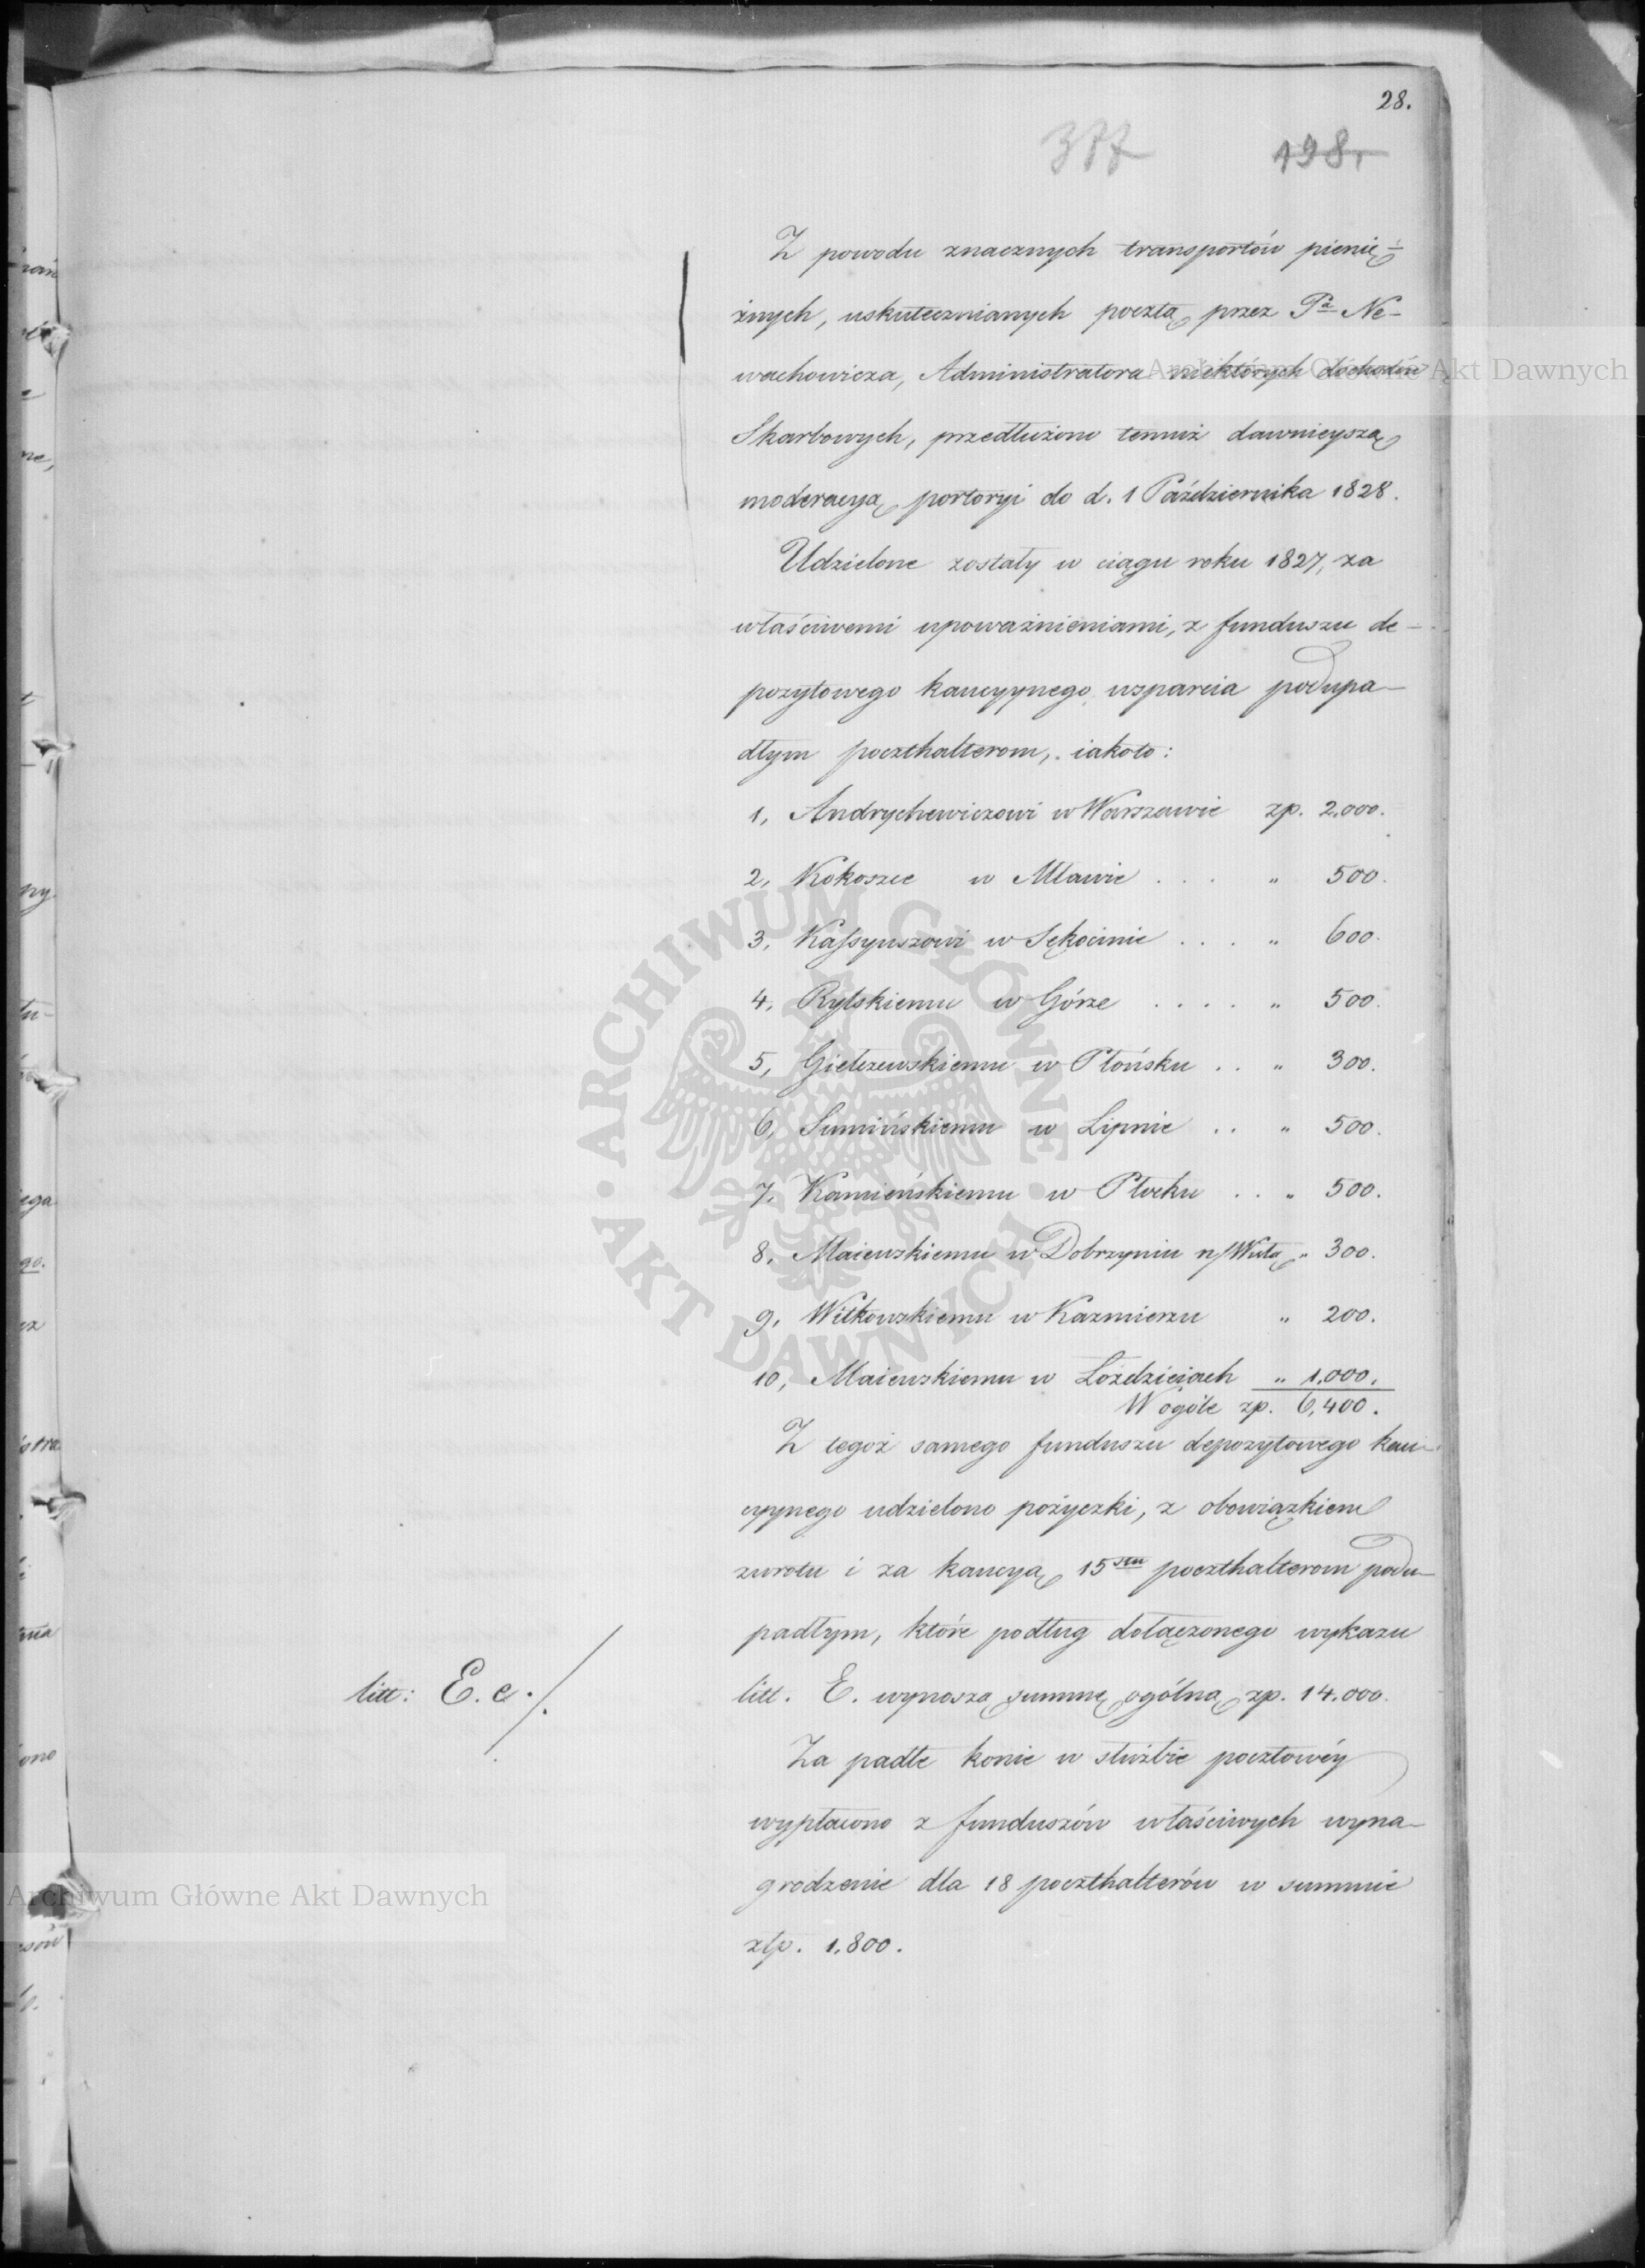 28.
377 198.
Z powodu znacznych transportów pienię-
żnych, uskutecznianych pocztą przez Pa Ne-
wachowicza, Administratora niektórych dochodów
Skarbowych, przedłużono temuż dawnieyszą
moderacyą portoryi do d. 1 Października 1828.
Udzielone zostały w ciągu roku 1827, za
właściwemi upoważnieniami, z funduszu de-
pozytowego kaucyynego wsparcia podupa-
dłym poczthalterom, iakoto:
1, Andrychewiczowi w Warszawie zp. 2.000.
2, Kokoszce w Mławie . . . " 500.
3, Kassyuszowi w Sękocinie . . . " 600.
4, Rylskiemu w Górze . . . . " 500.
5, Giełczewskiemu w Płońsku . . " 300.
6, Sumińskiemu w Lipnie . . " 500.
7, Kamieńskiemu w Płocku . . " 500.
8, Maiewskiemu w Dobrzyniu n/Wisłą " 300.
9, Witkowskiemu w Kazmierzu " 200.
10, Maiewskiemu w Łoździeiach " 1,000.
W ogóle zp. 6,400.
Z tegoż samego funduszu depozytowego kau-
cyynego udzielono pożyczki, z obowiązkiem
zwrotu i za kaucyą 15stu poczthalterom podu-
padłym, które podług dołączonego wykazu
litt: E. e ./.
litt. E. wynoszą summę ogólną zp. 14.000.
Za padłe konie w służbie pocztowéy
wypłacono z funduszów właściwych wyna-
grodzenie dla 18 poczthalterów w summie
złp. 1,800.
Archiwum Główne Akt Dawnych
Archiwum Główne Akt Dawnych
ARCHIWUM GŁÓWNE AKT DAWNYCH